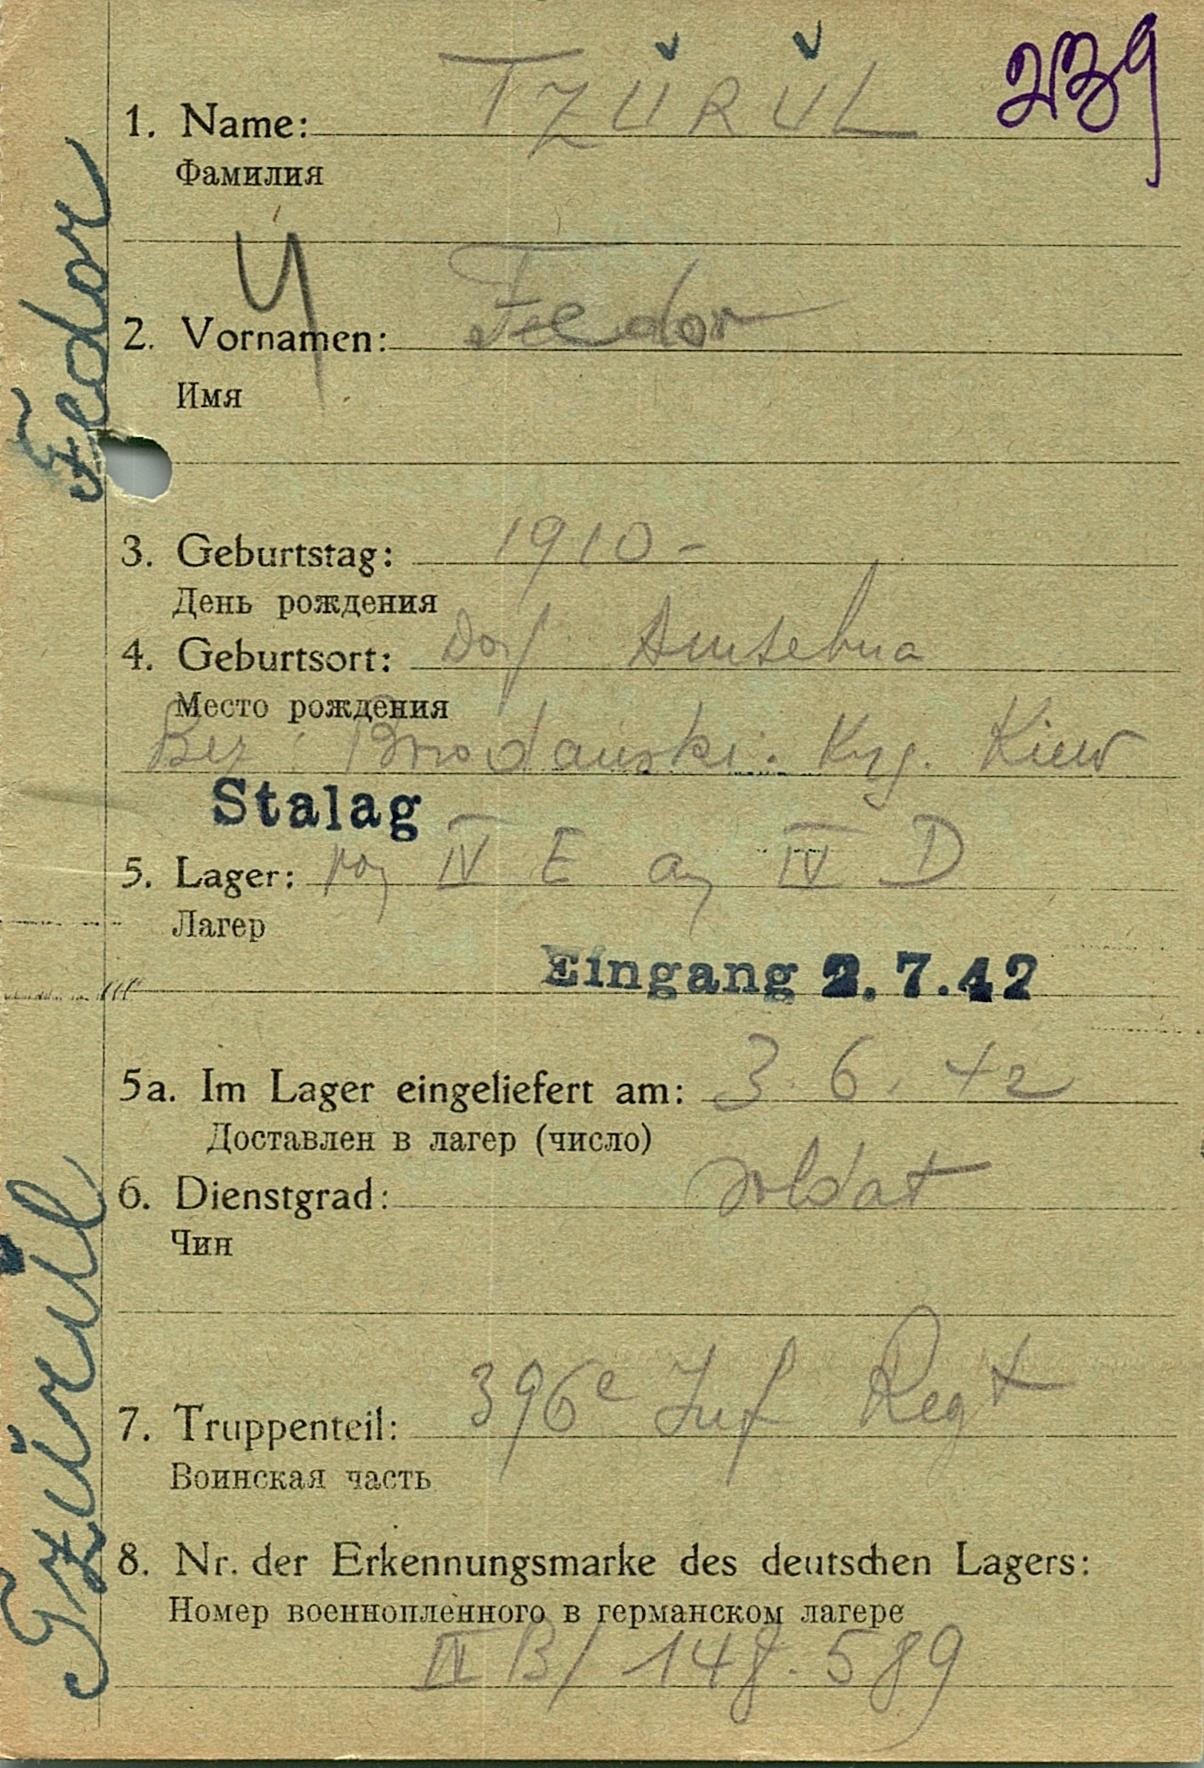 239
1. Name: TZURUL
Фамилия
Ч
2. Vornamen: Fedor
Имя
3. Geburtstag: 1910 -
День рождения
4. Geburtsort: Dorf
Место рождения
Bez: Krg. Kiew
Stalag
5. Lager: von IV E an IV D
Лагер
Eingang 2.7.42
5a. Im Lager eingeliefert am: 3. 6. 42
Доставлен в лагер (число)
6. Dienstgrad: Soldat
Чин
7. Truppenteil: 396e Inf Regt
Воинская часть
8. Nr. der Erkennungsmarke des deutschen Lagers:
Номер военнопленного в германском лагере
IV B/ 148.589
Tzurul Fedor